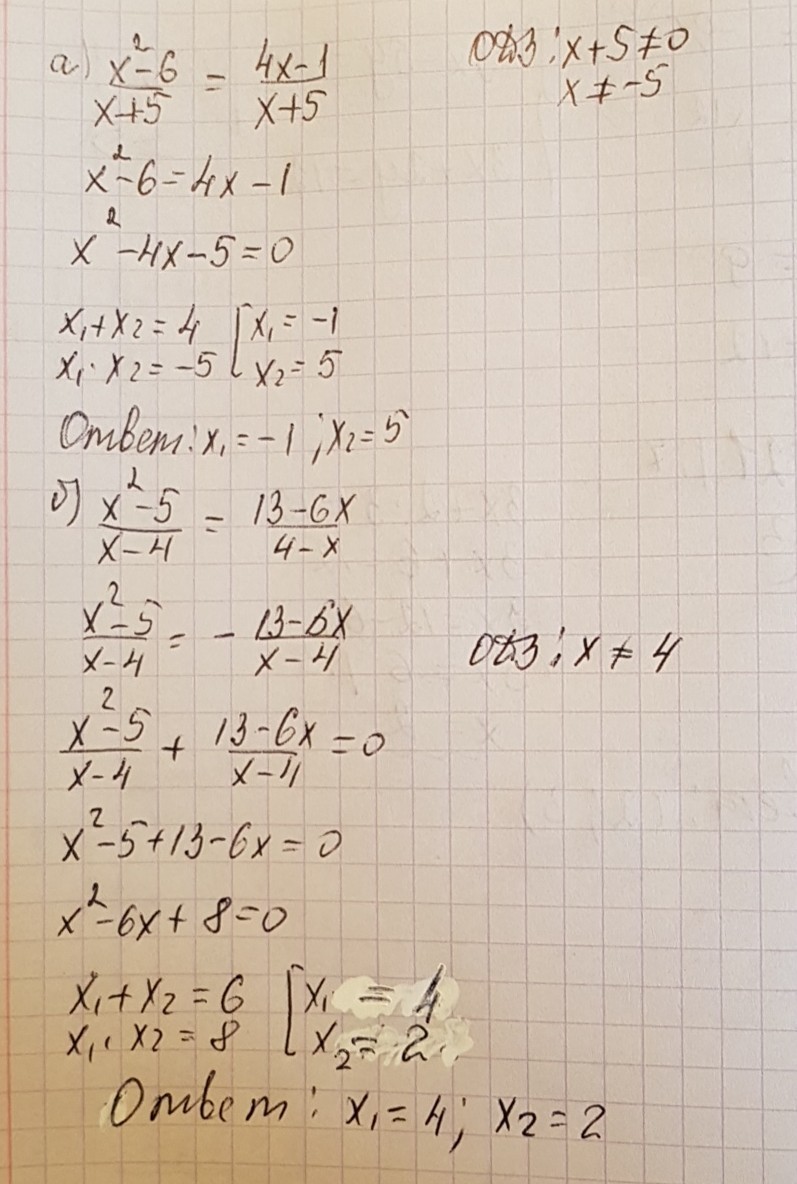 а) x²-6/x+5 = 4x-1/x+5 ОДЗ: x+5≠0
x≠-5
x²-6=4x-1
x²-4x-5=0
x₁+x₂=4 [x₁=-1
x₁·x₂=-5 [x₂=5
Ответ: x₁=-1; x₂=5
б) x²-5/x-4 = 13-6x/4-x
x²-5/x-4 = - 13-6x/x-4 ОДЗ: x≠4
x²-5/x-4 + 13-6x/x-4 = 0
x²-5+13-6x=0
x²-6x+8=0
x₁+x₂=6 [x₁=4
x₁·x₂=8 [x₂=2
Ответ: x₁=4; x₂=2